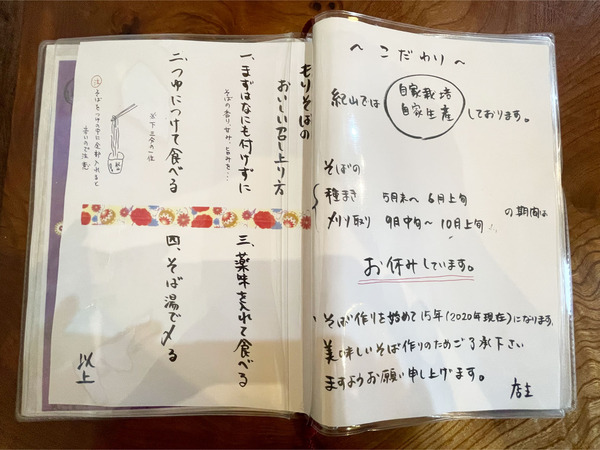 もりそばの
おいしい召し上り方
一、まずはなにも付けずに
そばの香り、甘み、旨みを…
二、つゆにつけて食べる
※下三分の一位
注
そばをつけつゆに全部入れると
辛いのでご注意
三、薬味を入れて食べる
四、そば湯で〆る
以上
～こだわり～
紀山では
自家栽培
自家生産
しております。
そばの
種まき 5月末～6月上旬
刈り取り 9月中旬～10月上旬
の期間は
お休みしています。
そば作りを始めて15年(2020年現在)になります。
美味しいそば作りのためご了承下さい
ますようお願い申し上げます。
店主